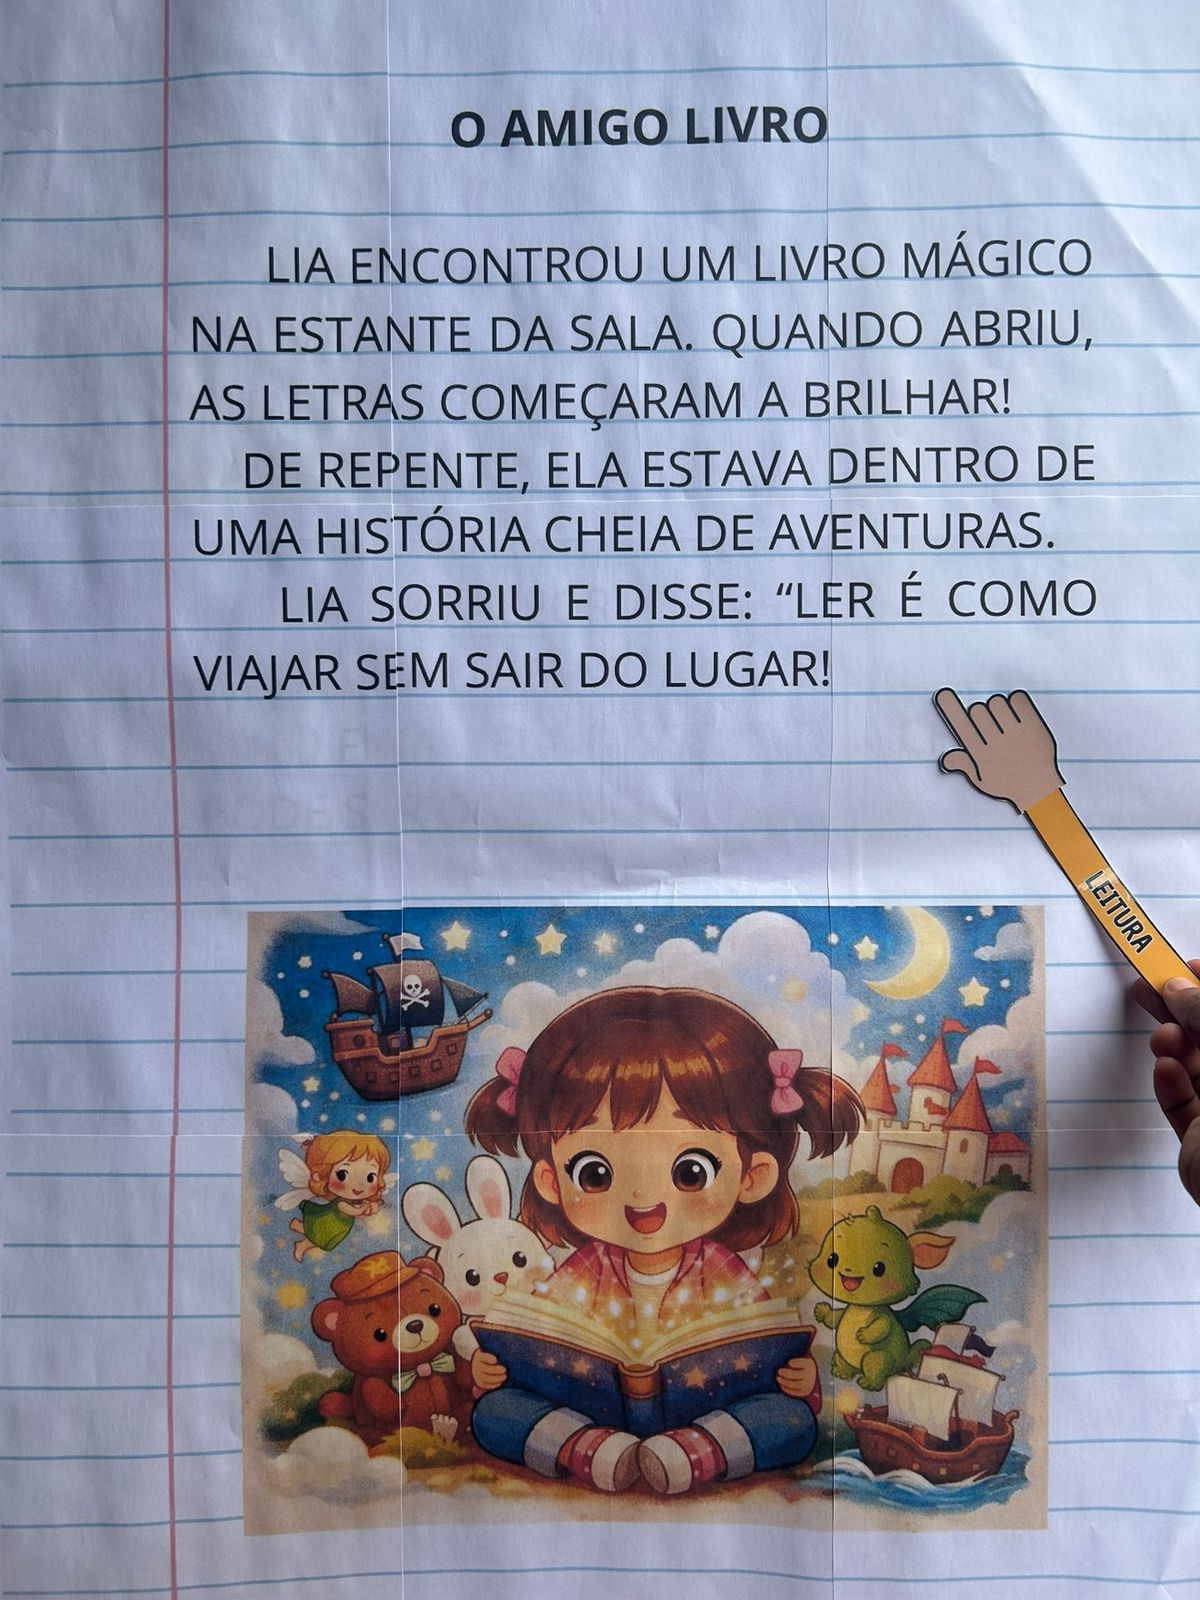 O AMIGO LIVRO
LIA ENCONTROU UM LIVRO MÁGICO
NA ESTANTE DA SALA. QUANDO ABRIU,
AS LETRAS COMEÇARAM A BRILHAR!
DE REPENTE, ELA ESTAVA DENTRO DE
UMA HISTÓRIA CHEIA DE AVENTURAS.
LIA SORRIU E DISSE: “LER É COMO
VIAJAR SEM SAIR DO LUGAR!
LEITURA